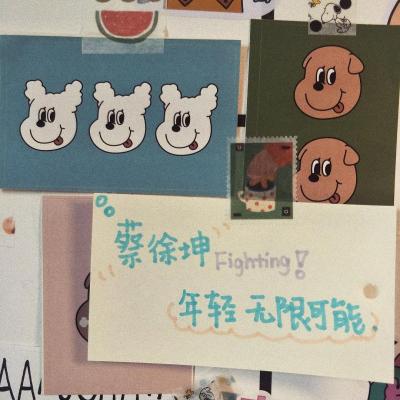 蔡徐坤 Fighting!
年轻 无限可能.